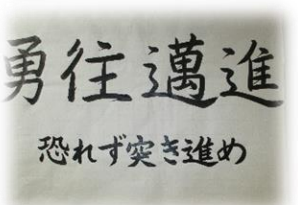 勇往邁進
恐れず突き進め